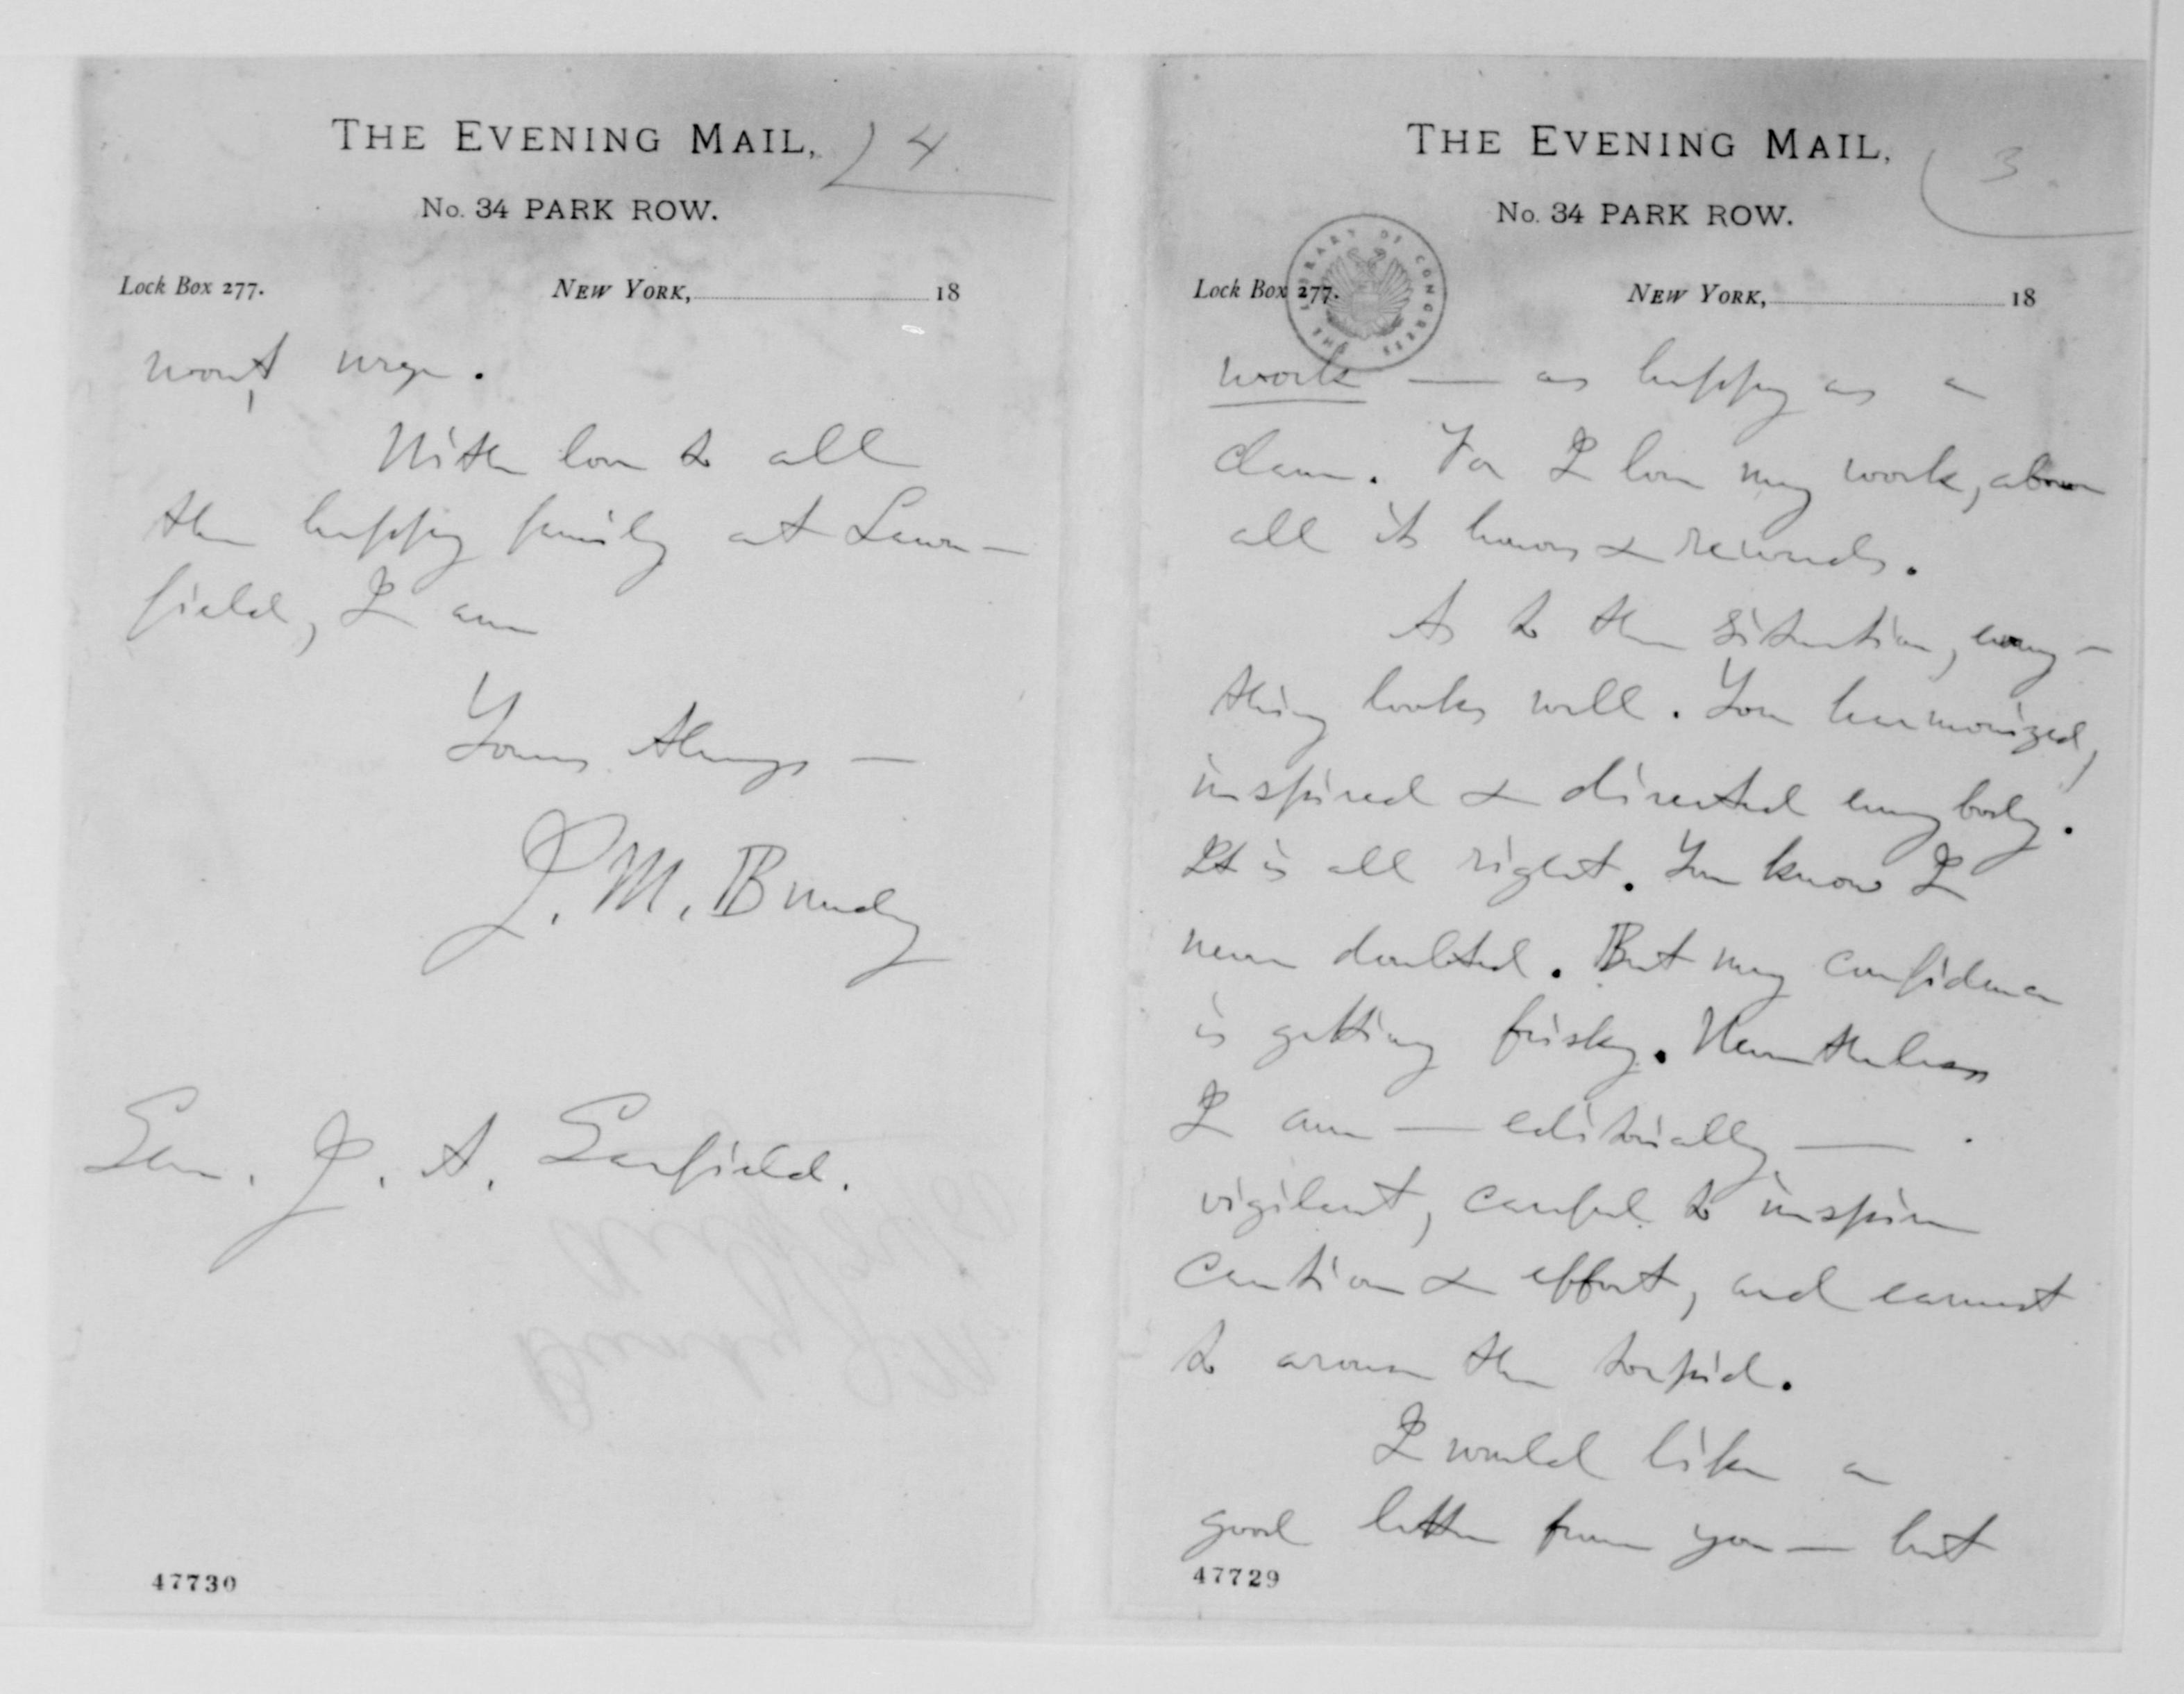 THE EVENING MAIL, 4
No. 34 PARK ROW.
Lock Box 277. NEW YORK, 18
won't urge.
With love to all
the happy family at Lawn-
field, I am
Yours Always —
J. M. Bundy
Gen. J. A. Garfield.
47730
THE EVENING MAIL, 3
No. 34 PARK ROW.
Lock Box 277. NEW YORK, 18
THE LIBRARY OF CONGRESS
work — as happy as a
clam. For I love my work, above
all its honors & rewards.
As to the situation, every-
thing looks well. You harmonized,
inspired & directed everybody.
It is all right. You know I
never doubted. But my confidence
is getting frisky. Nevertheless
I am — editorially —
vigilant, careful to inspire
caution & effort, and earnest
to arouse the torpid.
I would like a
good letter from you — but
47729